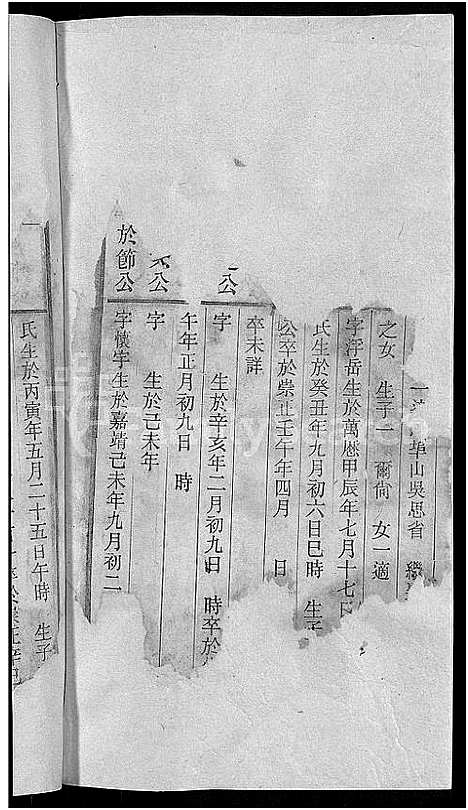 埠山吳思省
之女 生子一 爾尙 女一適
字浮岳生於萬曆甲辰年七月十七日
氏生於癸丑年九月初六日巳時 生子
公卒於崇正壬午年四月 日
卒未詳
公
字 生於辛亥年二月初九日 時卒於
午年正月初九日 時
公
字 生於己未年
於節公
字懷宇生於嘉靖己未年九月初二
氏生於丙寅年五月二十五日午時 生子